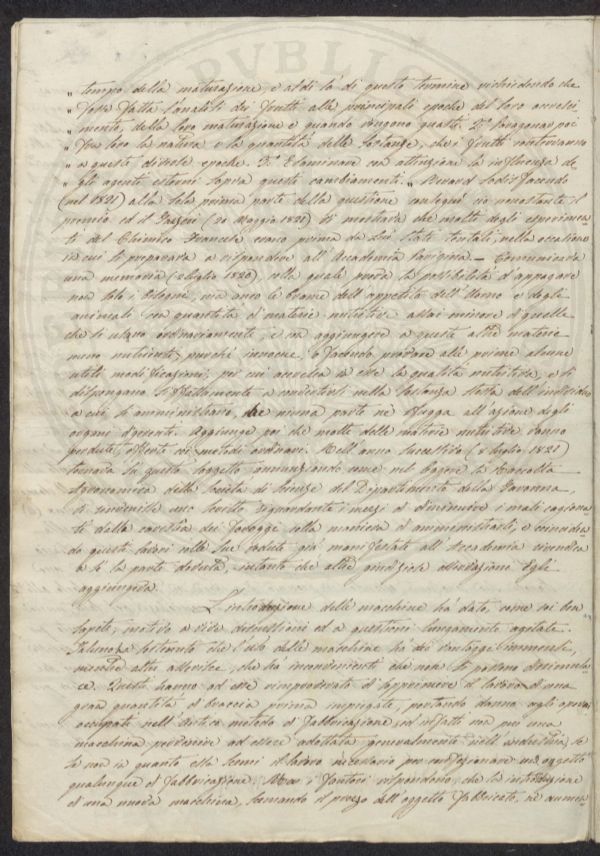 PVBLIC
„ tempo della maturazione, e al di là di questo termine richiedendo che
„ fosse fatta l'analisi dei frutti alle principali epoche del loro accresci
„ mento, della loro maturazione e quando vengono guasti. 2.° Paragonar poi
„ fra loro la natura e la quantità delle sostanze, che i frutti conterranno
„ a queste diverse epoche. 3.° Esaminare con attenzione la influenza de-
„ gli agenti esterni sopra questi cambiamenti. „ Berard sodisfacendo
(nel 1821) alla sola prima parte della questione conseguì ciò nonostante il
premio ed il (20 Maggio 1821) di mostrare che molti degli esperimen
ti del Chimico Francese erano prima da Lui stati tentati, nella occasione
in cui si preparava a rispondere all'Accademia Parigina. — Comunicava
una memoria (2 luglio 1820) colla quale prova la possibilità d'appagare
non solo i bisogni, ma anco le brame dell'appetito dell'Uomo e degli
animali con quantità di materie nutritive assai minore di quelle
che si usano ordinariamente, e con aggiungere a queste altre materie
meno nutrienti, purchè innocue, o facendo provare alle prime alcune
utili modificazioni, per cui accresca in esse la qualità nutritiva, e si
dispongano sì fattamente a convertirsi nella sostanza stessa dell'individuo
a cui si amministrano, che niuna parte ne sfugga all'azione degli
organi digerenti. Aggiunge poi che molte delle materie nutritive vanno
perdute, nei metodi ordinari. Nell'anno successivo ( luglio 1821)
tornava su questo soggetto annunziando come nel la Raccolta
Agronomica della Società di Scienze del Dipartimento della
di uno scritto riguardante i mezzi di diminuire i mali cagiona
ti dalla carestia dei foraggi colla maniera di amministrarli, e
da questi lavori colle sue vedute già manifestate all'Accademia rivendica
a se la parte dovuta, intanto che altre giudiziose osservazioni Egli
aggiungeva.
L'introduzione delle macchine ha dato, come voi ben
sapete, motivo a vive discussioni ed a questioni lungamente agitate.
sostenuto che l'uso delle macchine ha dei vantaggi immensi,
mentre altri asserisce, che ha inconvenienti che non si possono dissimula
re. Questi hanno ad esse rimproverato di sopprimere il lavoro di una
gran quantità di braccia prima impiegate, portando danno agli operai
occupati nell'antico metodo di fabbricazione, ed infatti mai una
macchina pervenire ad essere adottata generalmente nell'industria, se
non in quanto ella scemi il lavoro necessario per confezionare un oggetto
qualunque di fabbricazione. i fautori rispondono, che la introduzione
di una nuova macchina, scemando il prezzo dell'oggetto fabbricato, ne aumen